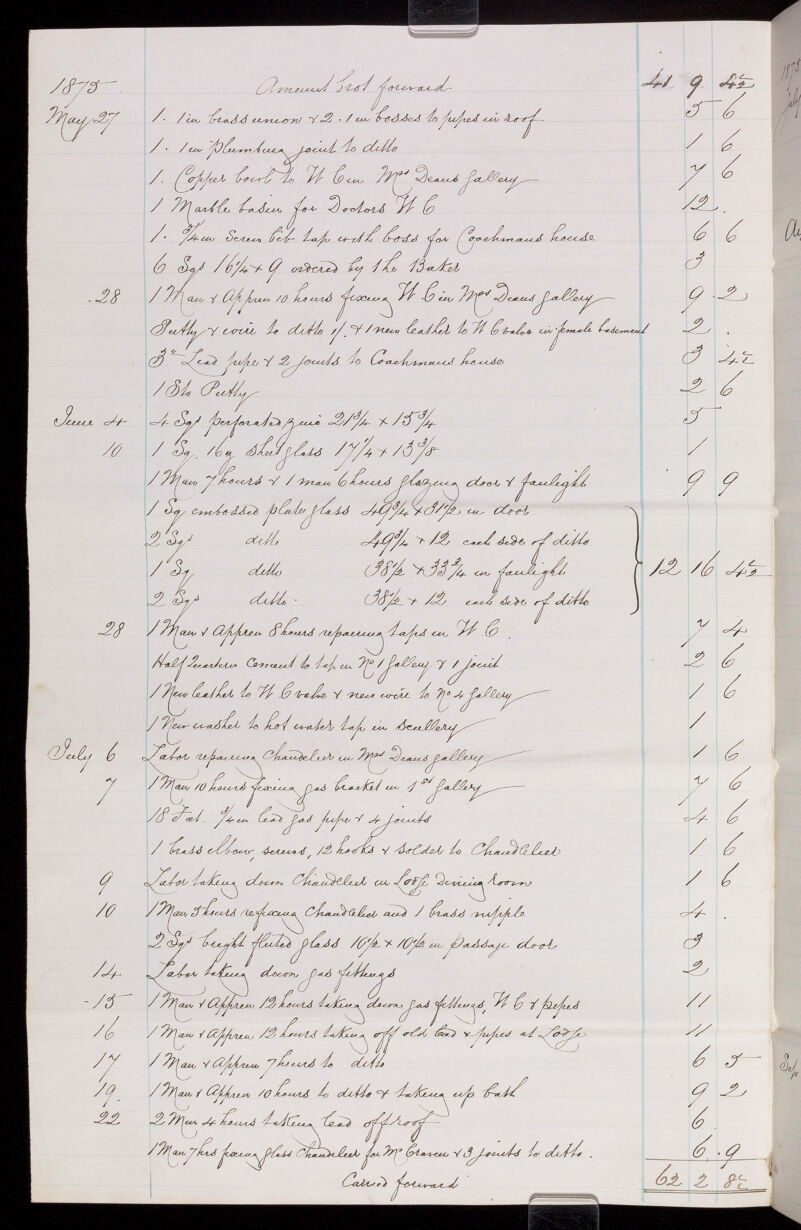 1875 Amount brot forward 41 9 4½
May 27 1. 1in brass union & 2. 1in bosses to pipes in roof 5 6
1. 1in plumbing joint to ditto 1 6
1. Copper bowl to W C in Mrs Deans gallery 7 6
1 Marble basin for Doctors W C 12 .
1. ¾in Screw bib tap with boss for Coachmans house 6 6
6 Sqs 16¼ + 9 ordered by the Baker 3
28 1 Man & Appren 10 hours fixing W C in Mrs Deans gallery 9 2
Putty & wire to ditto 1/. & 1 new leather to W C valve in female basement 2 .
Lead pipe & 2 joints to Coachmans house 3 4½
1 Sto Putty 2 6
June 4 4 Sqs perforated zinc 21¾ + 15¾ 5
10 1 Sq. 16 oz sheet glass 17¼ + 13⅜ 1
1 Man 7 hours & 1 man 6 hours glazing door & fanlight 9 9
1 Sq embossed plate glass 49¾ + 31½ in door
2 Sqs ditto 49¾ + 12 each side of ditto
1 Sq ditto 38½ + 33¾ in fanlight 12 16 4½
2 Sqs ditto. 38½ + 12 each side of ditto
28 1 Man & Appren 8 hours repairing taps in W C. 7 4
Half Quartern Cement to tap in No 1 gallery & 1 joint 2 6
1 New leather to W C valve & new wire to No 4 gallery 1 6
1 New washer to hot water tap in scullery 1
July 6 Labor repairing Chandelier in Mrs Deans gallery 1 6
7 1 Man 10 hours fixing gas bracket in 1st gallery 7 6
18 Feet. ¾in lead gas pipe & 4 joints 4 6
1 brass elbow, screws, 12 hooks & solder to Chandelier 1 6
9 Labor taking down Chandelier in Lodge Dining room 1 6
10 1 Man 5 hours refixing Chandelier and 1 brass nipple 4 .
2 Sqs bright fluted glass 10½ + 10½ in passage door 3
14 Labor taking down gas fittings 2
15 1 Man & Appren 12 hours taking down gas fittings, W C & pipes 11
16 1 Man & Appren 12 hours taking off old lead & pipes at Lodge 11
17 1 Man & Appren 7 hours to ditto 6 5
19. 1 Man & Appren 10 hours to ditto & taking up bath 9 2
22 2 Men 4 hours taking lead off roof 6
1 Man 7 hrs fixing glass Chandelier for Mr Craven & 3 joints to ditto. 6. 9
Carried forward 62 2 8½